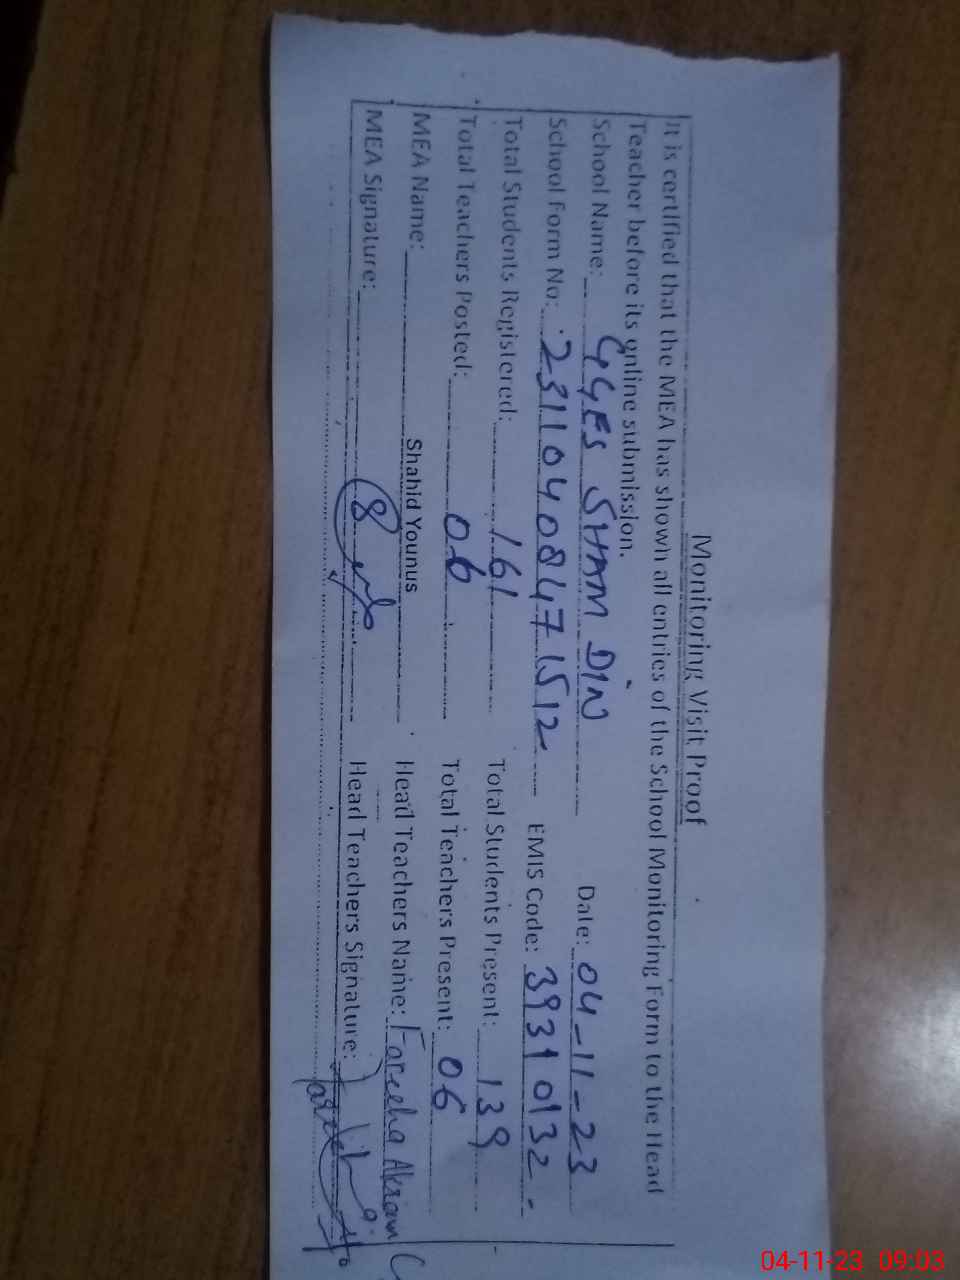 Monitoring Visit Proof
It is certified that the MEA has shown all entries of the School Monitoring Form to the Head
Teacher before its online submission.
School Name: GGES SHAM DIN Date: 04-11-23
School Form No: 23110408471512 EMIS Code: 39310132
Total Students Registered: 161 Total Students Present: 139
Total Teachers Posted: 06 Total Teachers Present: 06
MEA Name: Shahid Younus Head Teachers Name: Fareeha Akram
MEA Signature: Head Teachers Signature:
04-11-23 09:03